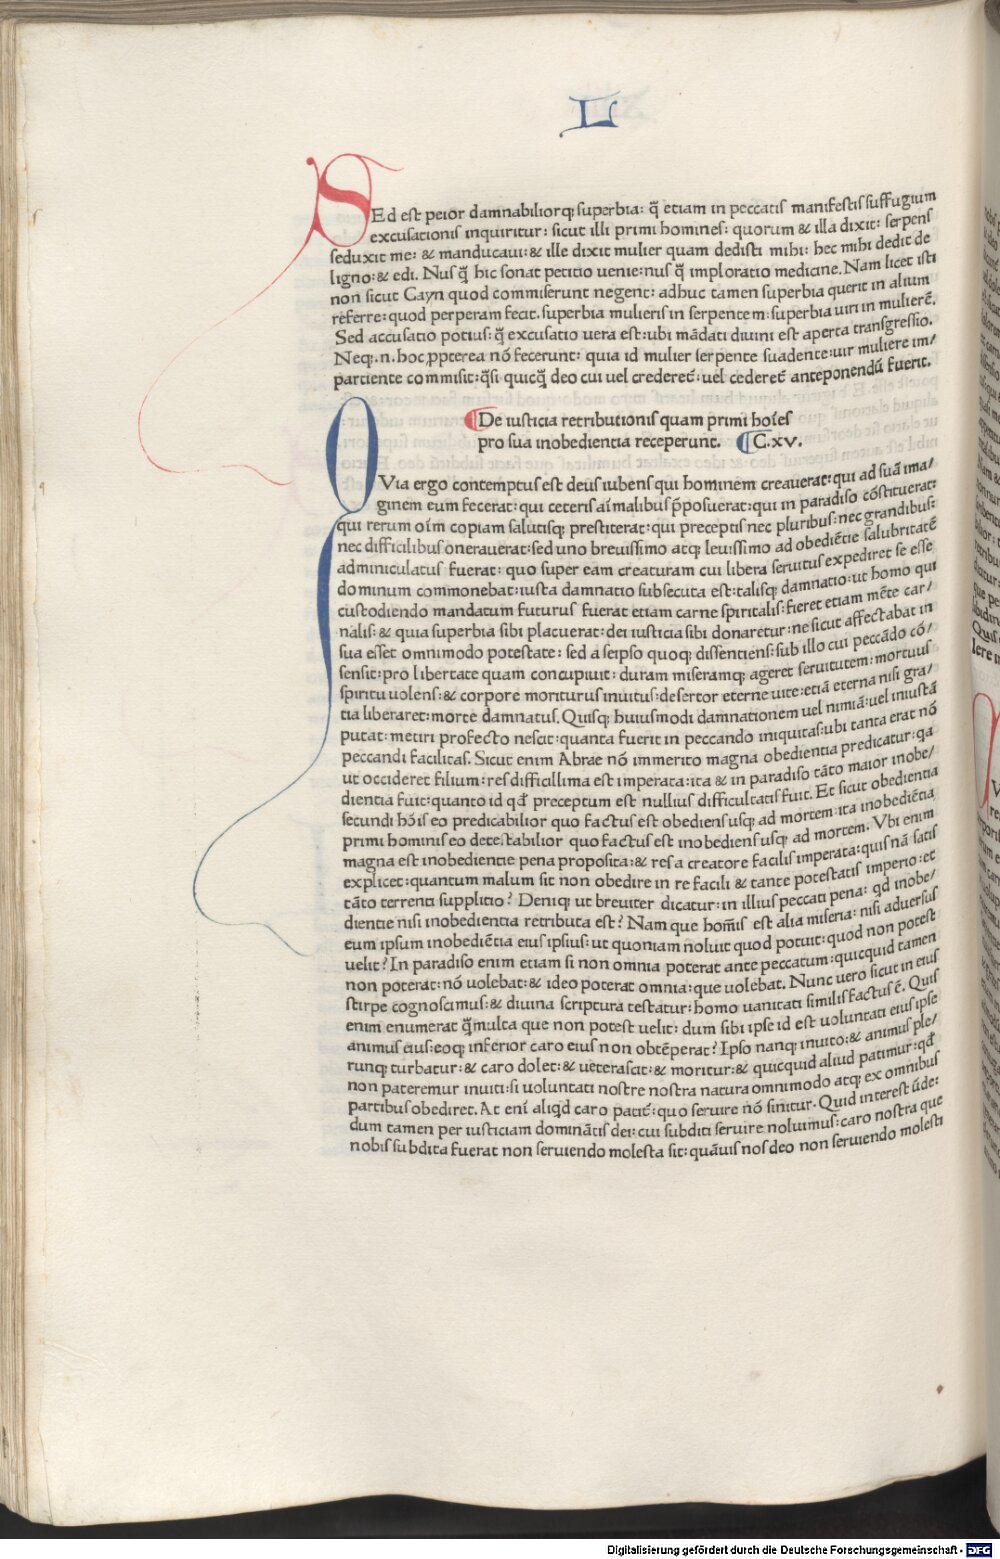 L
SEd est peior damnabiliorq; superbia: q̃ etiam in peccatis manifestis suffugium
excusationis inquiritur: sicut illi primi homines: quorum & illa dixit: serpens
seduxit me: & manducaui: & ille dixit mulier quam dedisti mihi: hec mihi dedit de
ligno: & edi. Nusq̃ hic sonat petitio uenie: nusq̃ imploratio medicine. Nam licet isti
non sicut Cayn quod commiserunt negent: adhuc tamen superbia querit in alium
referre: quod perperam fecit. superbia mulieris in serpentem: superbia uiri in mulierẽ.
Sed accusatio potius: q̃ excusatio uera est: ubi mãdati diuini est aperta transgressio.
Neq;.n.hoc ꝓpterea nõ fecerunt: quia id mulier serpente suadente: uir muliere im/
partiente commisit: q̃si quicq̃ deo cui uel crederet̃: uel cederet̃ anteponendũ fuerit.
De iusticia retributionis quam primi hoĩes
pro sua inobedientia receperunt. C.xv.
QVia ergo contemptus est deus iubens qui hominem creauerat: qui ad suã ima/
ginem eum fecerat: qui ceteris aĩmalibus p̃posuerat: qui in paradiso cõstituerat:
qui rerum oĩm copiam salutisq; prestiterat: qui preceptis nec pluribus: nec grandibus:
nec difficilibus onerauerat: sed uno breuissimo atq; leuissimo ad obediẽtie salubritatẽ
adminiculatus fuerat: quo super eam creaturam cui libera seruitus expediret se esse
dominum commonebat: iusta damnatio subsecuta est: talisq; damnatio: ut homo qui
custodiendo mandatum futurus fuerat etiam carne spiritalis: fieret etiam mẽte car/
nalis: & quia superbia sibi placuerat: dei iusticia sibi donaretur: ne sicut affectabat in
sua esset omnimodo potestate: sed a seipso quoq; dissentiens: sub illo cui peccãdo cõ/
sensit: pro libertate quam concupiuit: duram miseramq; ageret seruitutem: mortuus
spiritu uolens: & corpore moriturus inuitus: desertor eterne uite: etiã eterna nisi gra/
tia liberaret: morte damnatus. Quisq; huiusmodi damnationem uel nimiã: uel iniustã
putat: metiri profecto nescit: quanta fuerit in peccando iniquitas: ubi tanta erat nõ
peccandi facilitas. Sicut enim Abrae nõ immerito magna obedientia predicatur: qa
ut occideret filium: res difficillima est imperata: ita & in paradiso tãto maior inobe/
dientia fuit: quanto id qd̃ preceptum est nullius difficultatis fuit. Et sicut obedientia
secundi hõis eo predicabilior quo factus est obediens usq; ad mortem: ita inobediẽtia
primi hominis eo detestabilior quo factus est inobediens usq; ad mortem. Vbi enim
magna est inobedientie pena proposita: & res a creatore facilis imperata: quis nã satis
explicet: quantum malum sit non obedire in re facili & tante potestatis imperio: et
tãto terrenti supplitio? Deniq; ut breuiter dicatur: in illius peccati pena: qd inobe/
dientie nisi inobedientia retributa est? Nam que hom̃is est alia miseria: nisi aduersus
eum ipsum inobediẽtia eius ipsius: ut quoniam noluit quod potuit: quod non potest
uelit? In paradiso enim etiam si non omnia poterat ante peccatum: quicquid tamen
non poterat: nõ uolebat: & ideo poterat omnia: que uolebat. Nunc uero sicut in eius
stirpe cognoscimus: & diuina scriptura testatur: homo uanitati similis factus ẽ. Quis
enim enumerat q̃multa que non potest uelit: dum sibi ipse id est uoluntati eius ipse
animus eius: eoq; inferior caro eius non obtẽperat? Ipso nanq; inuito: & animus ple/
runq; turbatur: & caro dolet: & ueterascit: & moritur: & quicquid aliud patimur: qd̃
non pateremur inuiti: si uoluntati nostre nostra natura omnimodo atq; ex omnibus
partibus obediret. At enĩ aliqd caro patit̃: quo seruire nõ sinitur. Quid interest ũde:
dum tamen per iusticiam dominãtis dei: cui subditi seruire noluimus: caro nostra que
nobis subdita fuerat non seruiendo molesta sit: quãuis nos deo non seruiendo molesti
Digitalisierung gefördert durch die Deutsche Forschungsgemeinschaft - DFG